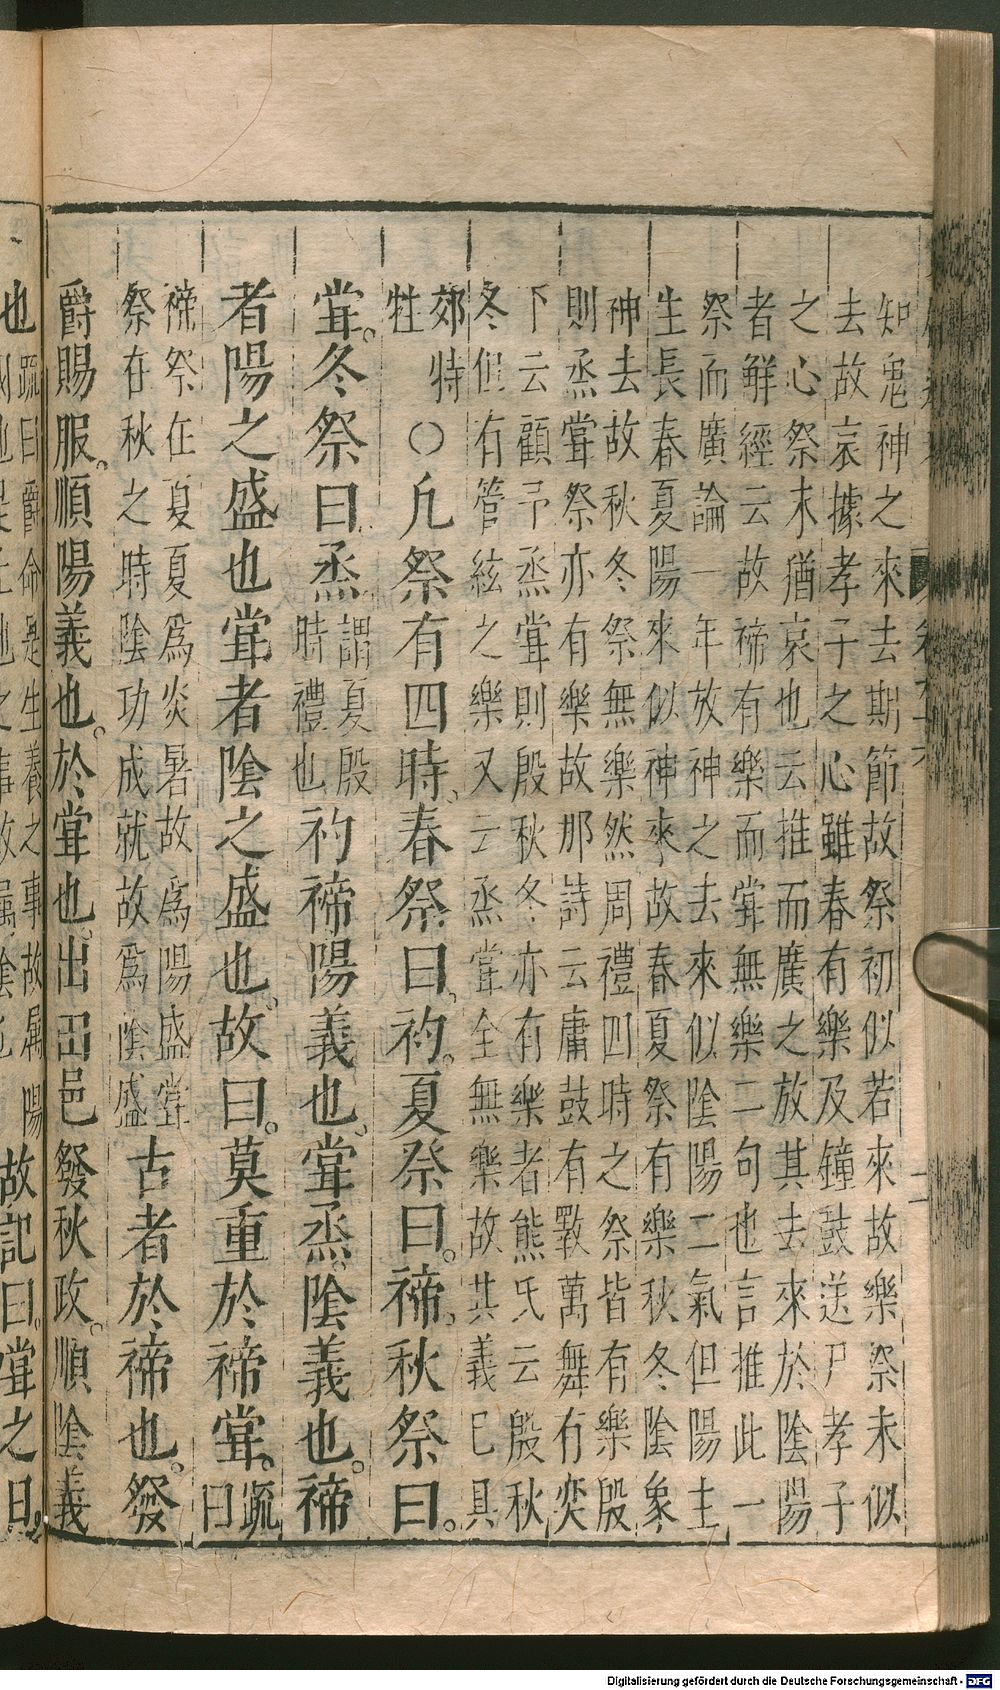 知鬼神之來去期節故祭初似若來故樂祭末似
去故哀據孝子之心雖春有樂及鐘鼓送尸孝子
之心祭末猶哀也云推而廣之放其去來於陰陽
者鮮經云故禘有樂而甞無樂二句也言推此一
祭而廣論一年放神之去來似陰陽二氣但陽主
生長春夏陽來似神來故春夏祭有樂秋冬陰象
神去故秋冬祭無樂然周禮四時之祭皆有樂殷
則烝甞祭亦有樂故那詩云庸鼓有斁萬舞有奕
下云顧予烝甞則殷秋冬亦有樂者熊氏云殷秋
冬但有管絃之樂又云烝甞全無樂故其義已具
郊特
牲
○凡祭有四時、春祭曰、礿。夏祭曰。禘、秋祭曰。
甞。冬祭曰烝
謂夏殷
時禮也
礿禘陽義也、甞烝陰義也。禘
者陽之盛也甞者陰之盛也。故曰。莫重於禘甞。
疏
曰
禘祭在夏夏爲炎暑故爲陽盛甞
祭在秋之時陰功成就故爲陰盛
古者於禘也。發
爵賜服。順陽義也。於甞也出田邑發秋政。順陰義
也
疏曰爵命是生養之事故屬陽
故記曰。甞之日。
Digitalisierung gefördert durch die Deutsche Forschungsgemeinschaft - DFG